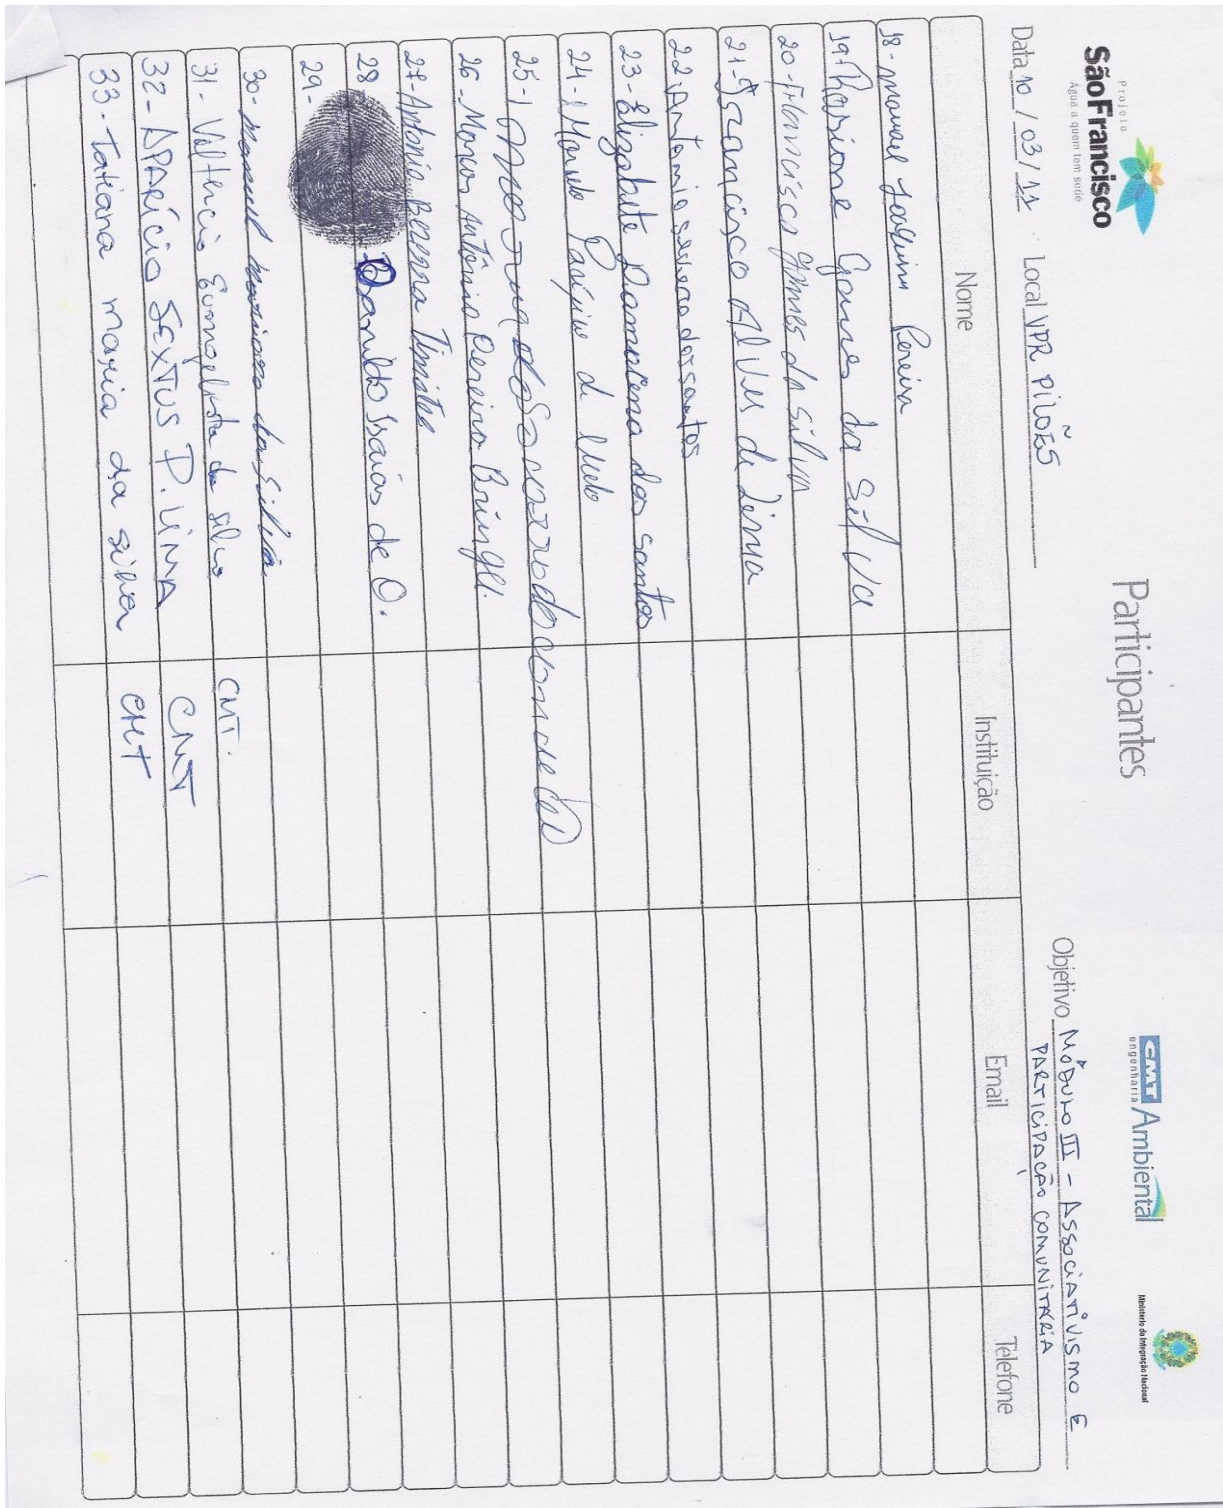 Projeto
São Francisco
Água a quem tem sede
Participantes
CMT Ambiental
engenharia
Ministério da Integração Nacional
Data 10 / 03 / 11 Local VPR PILÕES
Objetivo MÓDULO III - ASSOCIATIVISMO E
PARTICIPAÇÃO COMUNITÁRIA
Nome Instituição Email Telefone
18- manoel Joaquim Pereira
19- Gomes da Silva
20- Francisca Gomes da Silva
21- Francisco Alves de Lima
22 Antonio dos santos
23- Elizabete Damacena dos Santos
24- de Melo
25-
26- Marcos Antônio Pereira
27- Antonia Bezerra
28 Danildo Isaías de O.
29-
30- Manoel da Silva
31- Evangelista da silva CMT.
32- APARÍCIO SEXTUS P. LIMA CMT
33- Tatiana maria da silva CMT